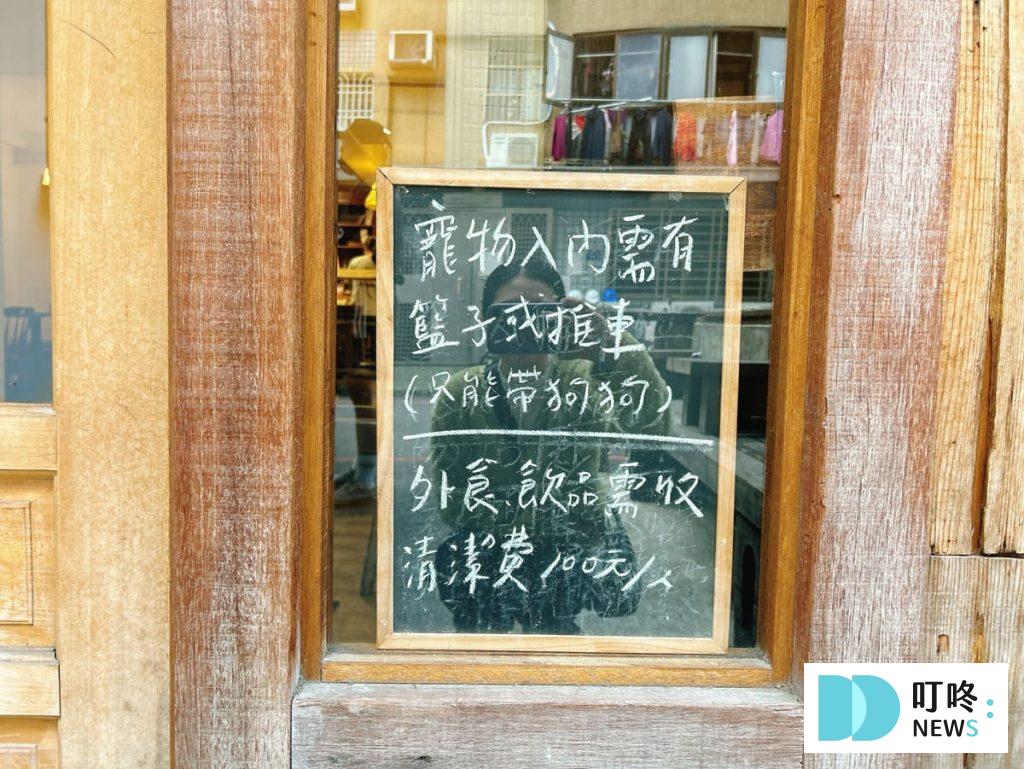 寵物入內需有
籃子或推車
(只能帶狗狗)
外食、飲品需收
清潔費100元/人
叮咚
NEWS